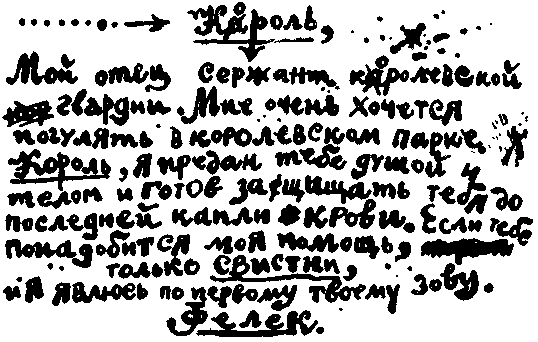 Король,
Мой отец сержант королевской
гвардии. Мне очень хочется
погулять в королевском парке.
Король, я предан тебе душой и
телом и готов защищать тебя до
последней капли крови. Если тебе
понадобится моя помощь,
только свистни,
и я явлюсь по первому твоему зову.
Фелек.